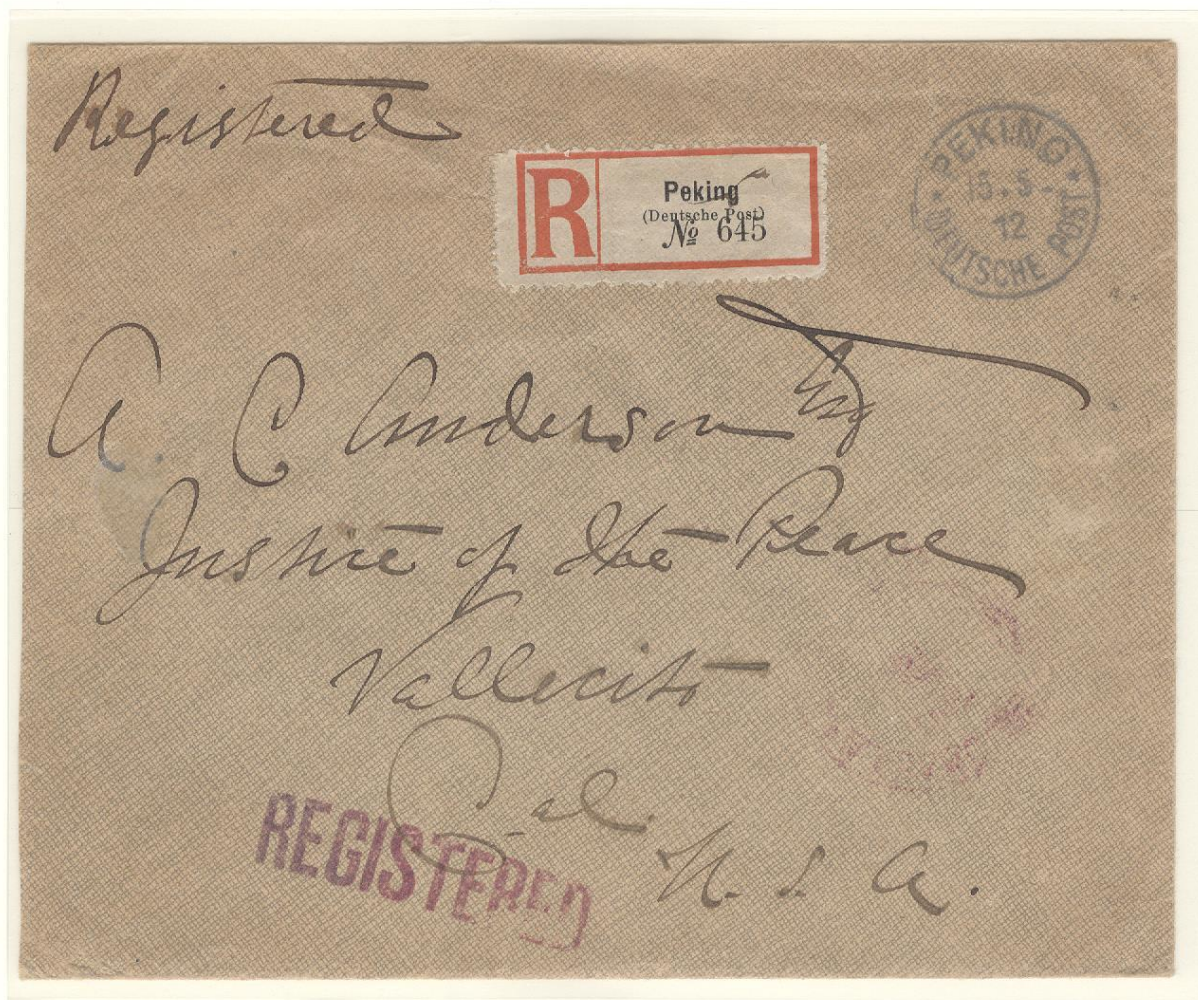 Registered
R
Peking
(Deutsche Post)
№ 645
PEKING
15.5.
12
DEUTSCHE POST
A. C. Anderson Esq
Justice of the Peace
Vallecito
Cal.
U. S. A.
REGISTERED